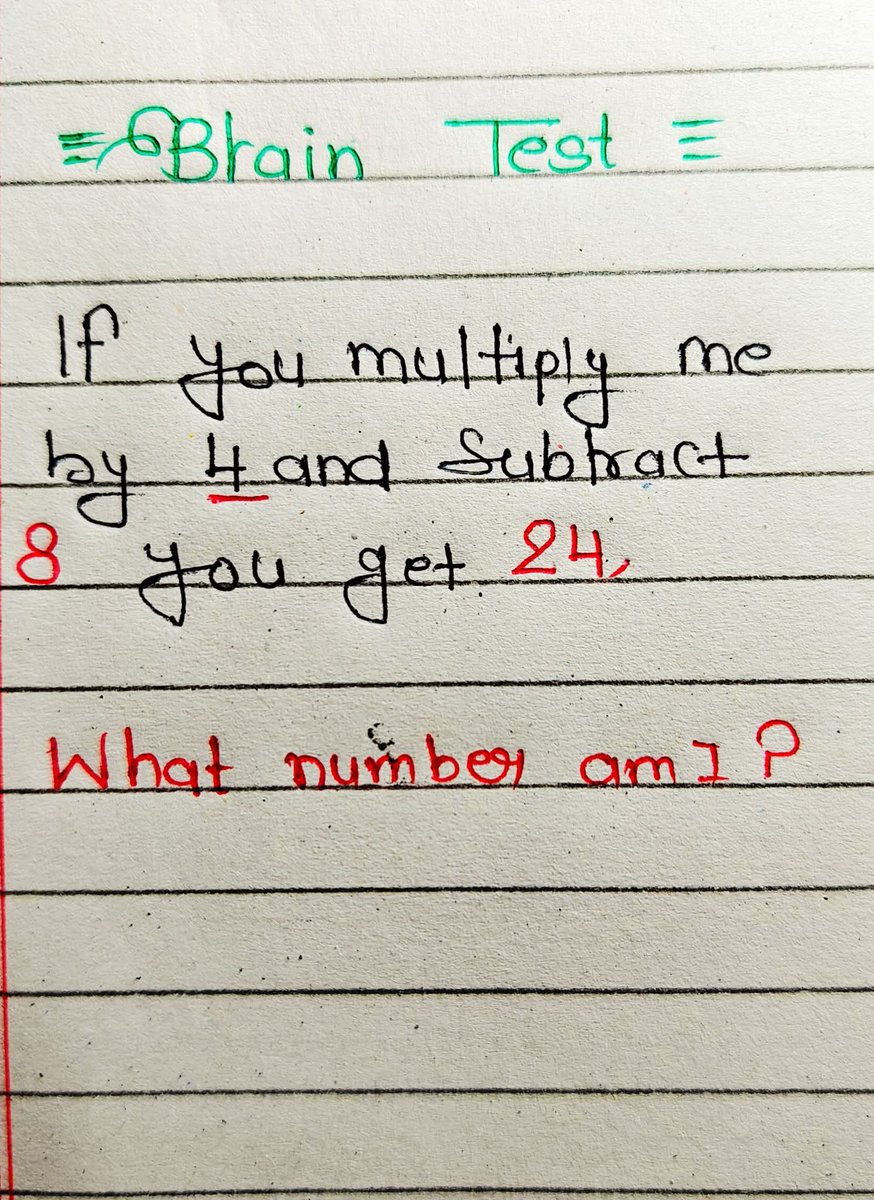 Brain Test
If you multiply me
by 4 and Subtract
8 you get 24,
What number am I?